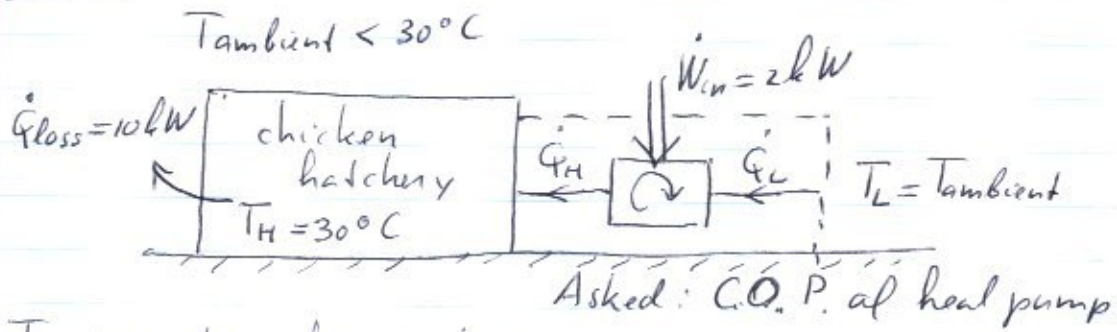 Tambient < 30°C
Ẇin = 2kW
Q̇loss = 10kW
chicken
hatchery
Q̇H
Q̇L
TL = Tambient
TH = 30°C
Asked: C.O.P. of heat pump